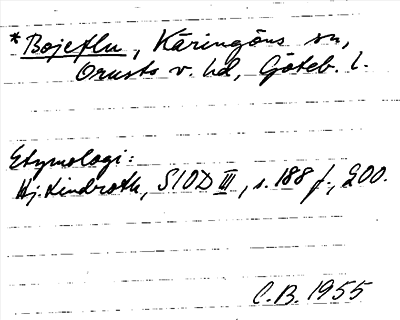 *Bojeflu, Käringöns sn,
Orusts v. hd, Göteb. l.
Etymologi:
Hj. Lindroth, SIOD III, s. 188 f., 200.
C.B. 1955